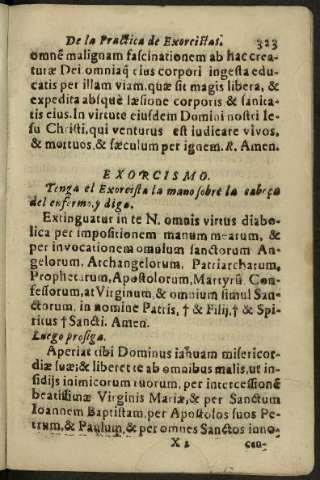 De la Practica de Exorcistas. 323
omnẽ malignam fascinationem ab hac crea-
turæ Dei omniaq́ eius corpori ingesta edu-
catis per illam viam, quæ sit magis libera, &
expedita absq̀ue læsione corporis & sanita-
tis eius. In virtute eiusdem Domini nostri Ie-
su Christi, qui venturus est iudicare vivos,
& mortuos, & sæculum per ignem. R. Amen.
EXORCISMO.
Tenga el Exorcista la mano sobre la cabeça
del enfermo, y diga.
Extinguatur in te N. omnis virtus diabo-
lica per impositionem manum mearum, &
per invocationem omnium sanctorum An-
gelorum, Archangelorum, Patriarchatum,
Prophetarum, Apostolorum, Martyrũ Con-
fessorum, at Virginum, & omnium simul San-
ctorum, in nomine Patris, † & Filij, † & Spi-
ritus † Sancti. Amen.
Luego prosiga.
Aperiat tibi Dominus ianuam misericor-
diæ suæ; & liberet te ab omnibus malis, ut in-
sidijs inimicorum tuorum, per intercessionẽ
beatissimæ Virginis Mariæ, & per Sanctum
Ioannem Baptistam, per Apostolos suos Pe-
trum, & Paulum, & per omnes Sanctos inno-
X 2 cen-